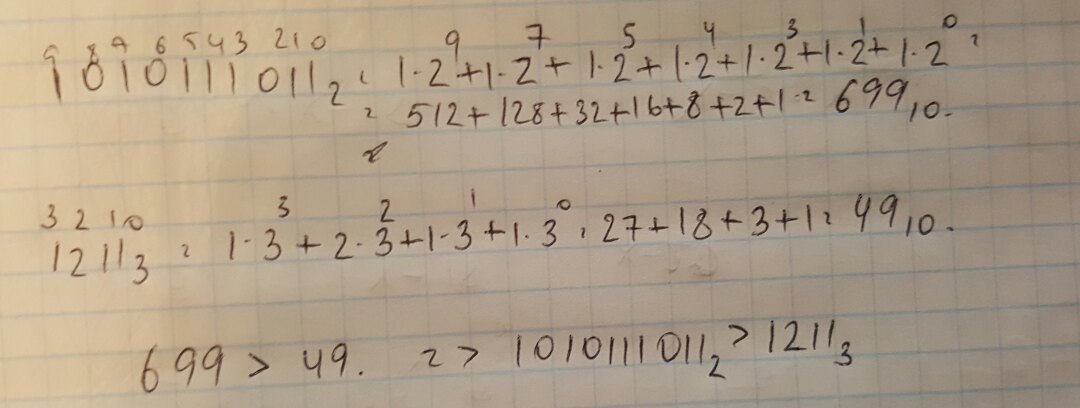 9 8 7 6 5 4 3 2 1 0
1010111011₂ = 1·2⁹+1·2⁷+1·2⁵+1·2⁴+1·2³+1·2¹+1·2⁰ =
= 512+128+32+16+8+2+1= 699₁₀.
3 2 1 0
1211₃ = 1·3³+2·3²+1·3¹+1·3⁰ = 27+18+3+1= 49₁₀.
699 > 49. => 1010111011₂ > 1211₃